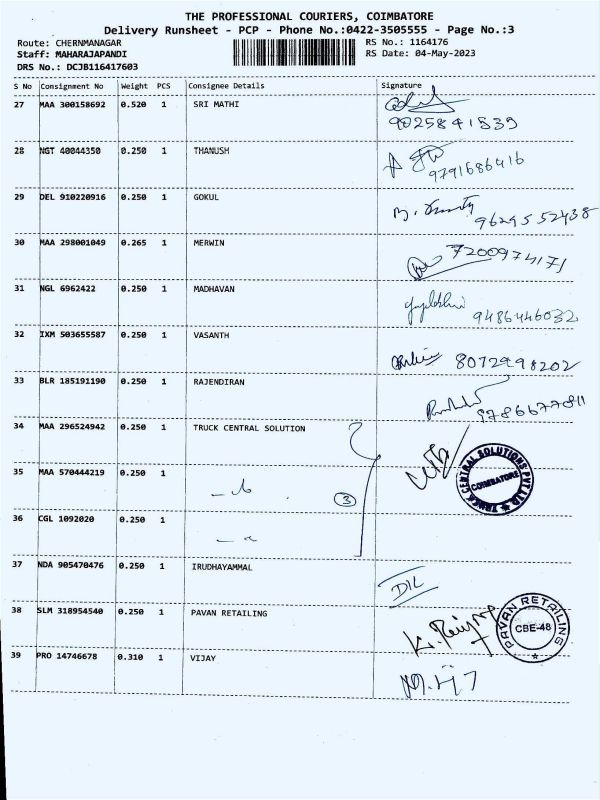 THE PROFESSIONAL COURIERS, COIMBATORE
Delivery Runsheet - PCP - Phone No.:0422-3505555 - Page No.:3
Route: CHERNMANAGAR
RS No.: 1164176
Staff: MAHARAJAPANDI
RS Date: 04-May-2023
DRS No.: DCJB116417603
S No Consignment No Weight PCS Consignee Details Signature
27 MAA 300158692 0.520 1 SRI MATHI
9025841539
28 NGT 40044350 0.250 1 THANUSH
9791686416
29 DEL 910220916 0.250 1 GOKUL
9629552438
30 MAA 298001049 0.265 1 MERWIN
7200974171
31 NGL 6962422 0.250 1 MADHAVAN
9486446032
32 IXM 503655587 0.250 1 VASANTH
8072998202
33 BLR 185191190 0.250 1 RAJENDIRAN
34 MAA 296524942 0.250 1 TRUCK CENTRAL SOLUTION
TRUCK CENTRAL SOLUTIONS PVT LTD
COIMBATORE
35 MAA 570444219 0.250 1
3
36 CGL 1092020 0.250 1
37 NDA 905470476 0.250 1 IRUDHAYAMMAL
DIL
38 SLM 318954540 0.250 1 PAVAN RETAILING
PAVAN RETAILING
CBE-48
39 PRO 14746678 0.310 1 VIJAY